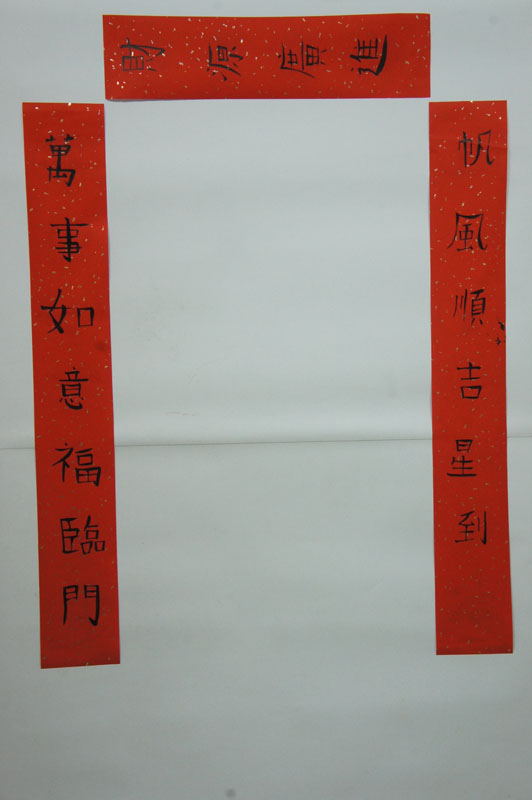 財源廣進
帆風順吉星到
萬事如意福臨門